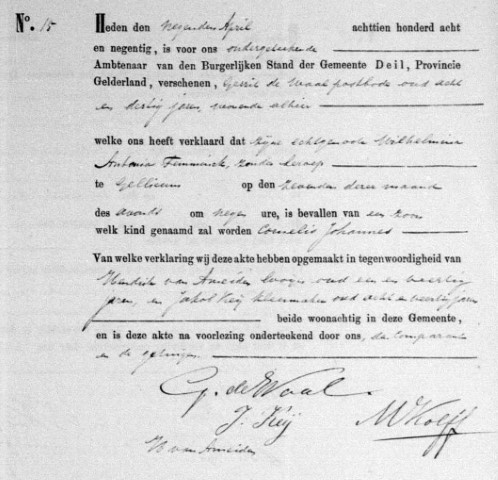 No. 15
Heden den negenden April achttien honderd acht
en negentig, is voor ons ondergeteekende
Ambtenaar van den Burgerlijken Stand der Gemeente Deil, Provincie
Gelderland, verschenen, Gerrit de Waal postbode oud acht
en dertig jaren, wonende alhier
welke ons heeft verklaard dat zijne echtgenoote Wilhelmina
Antonia Temminck, zonder beroep
te Gellicum op den zevenden dezer maand
des avonds om negen ure, is bevallen van een zoon
welk kind genaamd zal worden Cornelis Johannes
Van welke verklaring wij deze akte hebben opgemaakt in tegenwoordigheid van
Hendrik van Ameiden oud een en veertig
jaren, en Jakob Keij kleermaker oud acht en veertig jaren
beide woonachtig in deze Gemeente,
en is deze akte na voorlezing onderteekend door ons, de Comparant
en de getuigen.
G. de Waal.
J. Keij
MWKolff
H van Ameiden